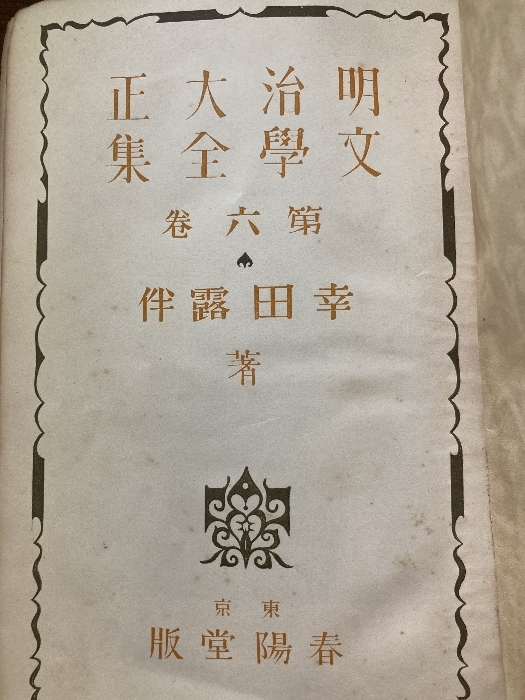 明治大正
文學全集
第六卷
幸田露伴
著
東京
春陽堂版